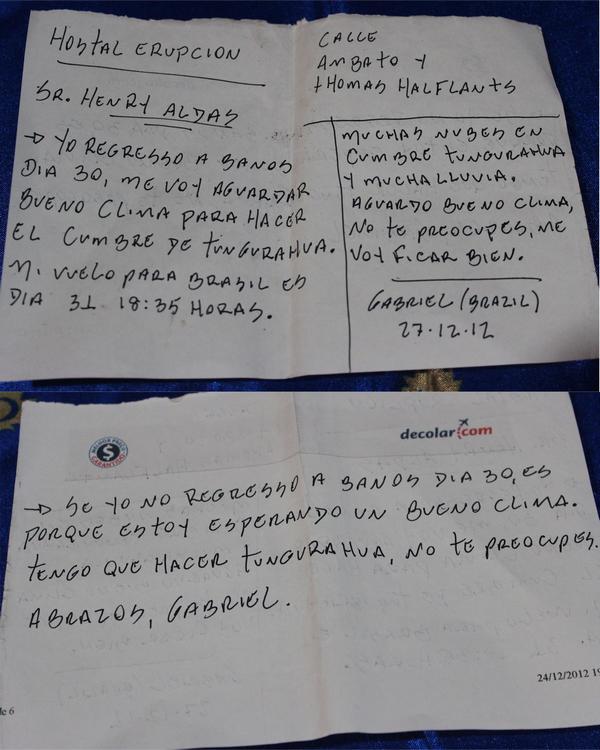 HOSTAL ERUPCION
SR. HENRY ALDAS
→ YO REGRESSO A BANOS
DIA 30, ME VOY AGUARDAR
BUENO CLIMA PARA HACER
EL CUMBRE DE TUNGURAHUA.
MI VUELO PARA BRASIL ES
DIA 31 18:35 HORAS.
CALLE
AMBATO Y
THOMAS HALFLANTS
MUCHAS NUBES EN
CUMBRE TUNGURAHUA
Y MUCHA LLUVIA.
AGUARDO BUENO CLIMA,
NO TE PREOCUPES, ME
VOY FICAR BIEN.
GABRIEL (BRAZIL)
27.12.12
MELHOR PREÇO
$
GARANTIDO
decolar.com
→ SE YO NO REGRESSO A BANOS DIA 30, ES
PORQUE ESTOY ESPERANDO UN BUENO CLIMA.
TENGO QUE HACER TUNGURAHUA, NO TE PREOCUPES.
ABRAZOS, GABRIEL.
24/12/2012 19
de 6